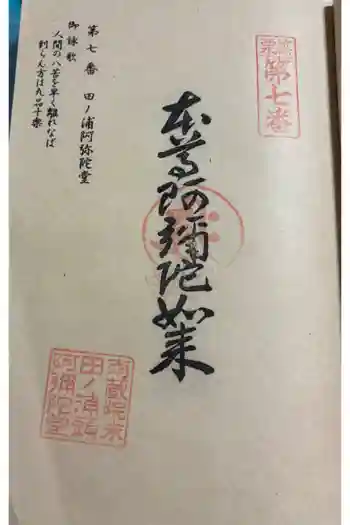 第七番
本尊阿彌陀如来
第七番 田ノ浦阿弥陀堂
御詠歌
人間の八苦を早く離れなば
到らん方は九品十楽
田ノ浦
阿彌陀堂